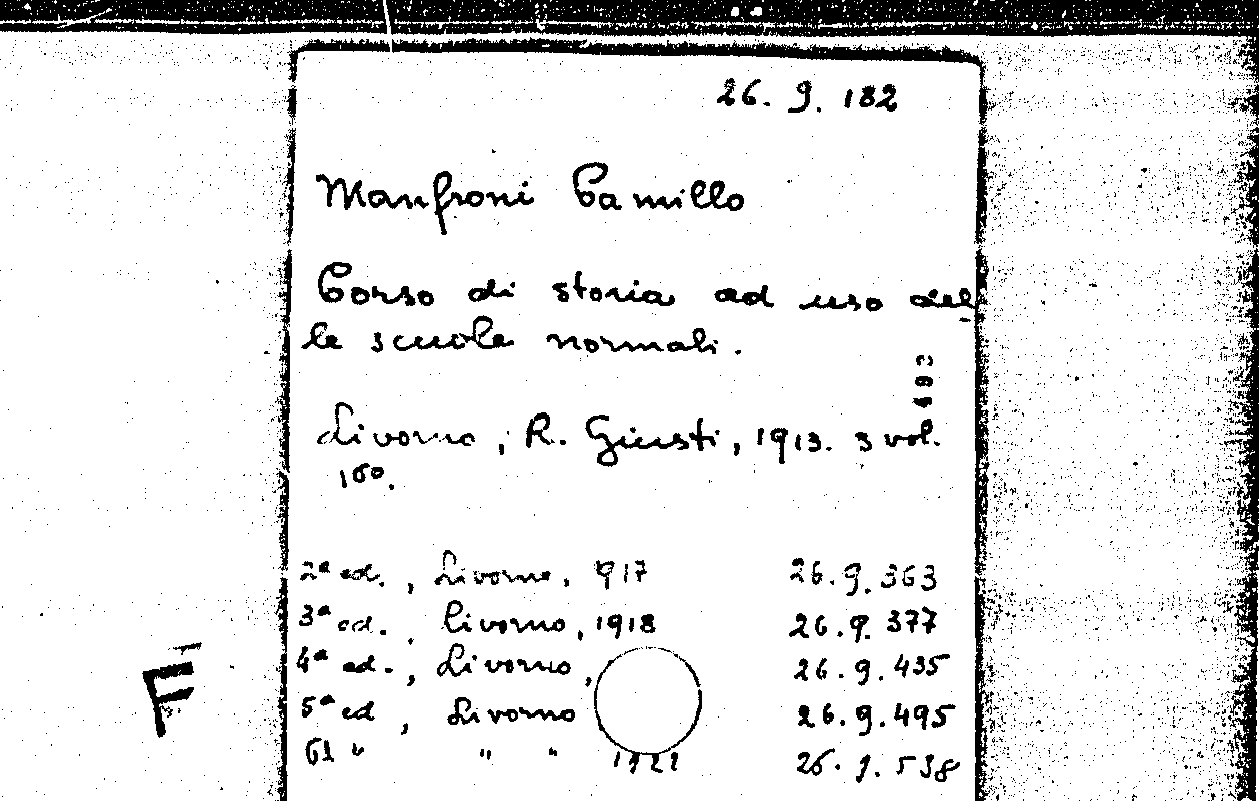 26. 9. 182
Manfroni Camillo
Corso di storia ad uso del
le scuole normali.
Livorno, R. Giusti, 1913. 3 vol.
16º.
2ª ed., Livorno, 1917 26.9.363
3ª ed., Livorno, 1918 26.9.377
4ª ed., Livorno, 26.9.435
5ª ed, Livorno 26.9.495
" " " 26.9.538
F